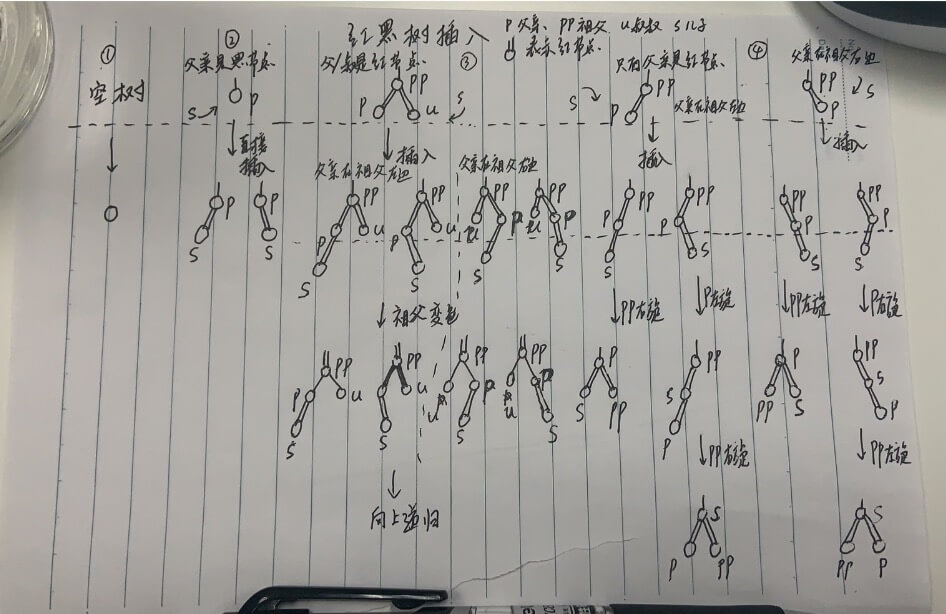 红黑树插入
P父亲 PP祖父 U叔叔 S儿子
表示红节点
①
空树
②
父亲是黑节点
S P
直接
插入
P P
S S
③
父/叔是红节点
PP
P U
S
插入
父亲在祖父左边
父亲在祖父右边
PP PP PP PP
P U P U U P U P
S S S S
祖父变色
PP PP PP PP
P U U U P U P
S S S S
向上递归
④
只有父亲是红节点
S PP
P
父亲在祖父左边
插入
PP PP
P P
S S
PP右旋 P左旋
P PP
S PP S
P
PP右旋
S
P PP
父亲在祖父右边
PP S
P
插入
PP PP
P P
S S
PP左旋 P右旋
P PP
PP S S
P
PP左旋
S
PP P